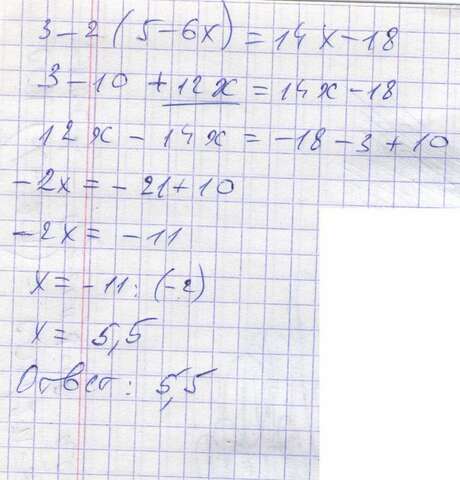 3 - 2 (5 - 6x) = 14x - 18
3 - 10 + 12x = 14x - 18
12x - 14x = -18 - 3 + 10
-2x = -21 + 10
-2x = -11
x = -11 : (-2)
x = 5,5
Ответ: 5,5